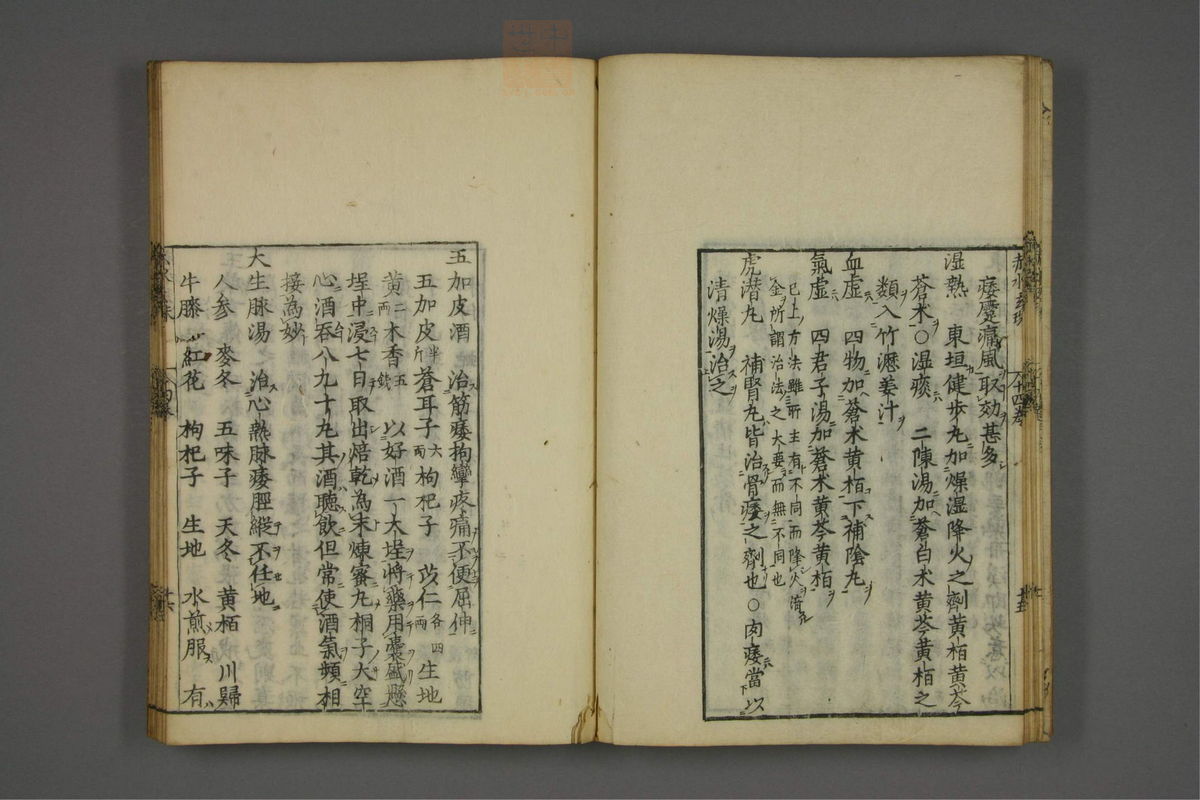 痿躄痛風取効甚多
湿熱　東垣健歩丸加燥湿降火之劑黄栢黄芩
蒼朮〇湿痰　二陳湯加蒼白朮黄芩黄栢之
類入竹瀝姜汁
血虚　四物加蒼朮黄栢下補陰丸
氣虚　四君子湯加蒼朮黄芩黄栢
已上方法雖所主有不同而降火清
金所謂治法之大要而無不同也
虎潜丸　補腎丸皆治骨痿之劑也〇肉痿當以
清燥湯治之
五加皮酒　治筋痿拘攣疼痛不便屈伸
五加皮半斤蒼耳子六両枸杞子　苡仁各四両生地
黄二両木香五錢　以好酒一大埕將藥用囊盛懸
埕中浸七日取出焙乾為末煉蜜丸桐子大空
心酒吞八九十丸其酒聽飲但常使酒氣頻相
接為妙
大生脉湯　治心熱脉痿脛縱不任地
人参　麥冬　五味子　天冬　黄栢　川歸
牛膝　紅花　枸杞子　生地　水煎服　有